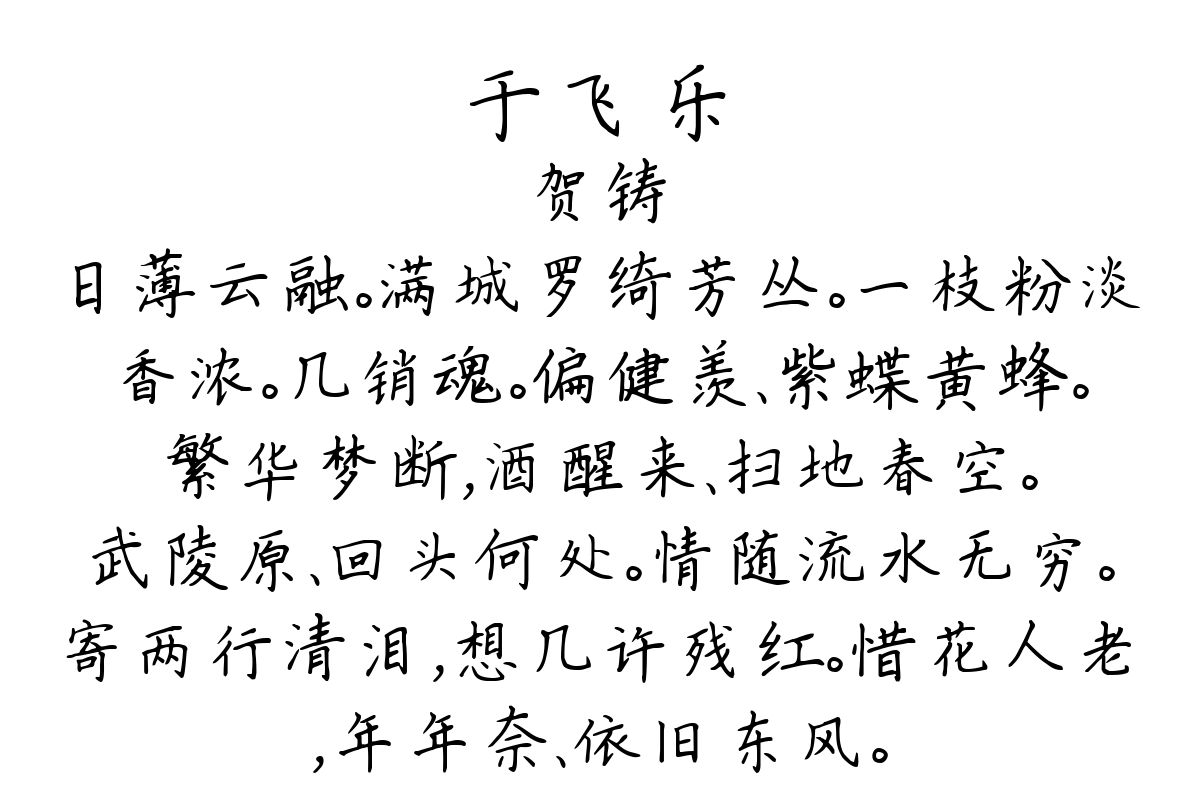 于飞乐
贺铸
日薄云融。满城罗绮芳丛。一枝粉淡
香浓。几销魂。偏健羡、紫蝶黄蜂。
繁华梦断,酒醒来、扫地春空。
武陵原、回头何处。情随流水无穷。
寄两行清泪,想几许残红。惜花人老
,年年奈、依旧东风。